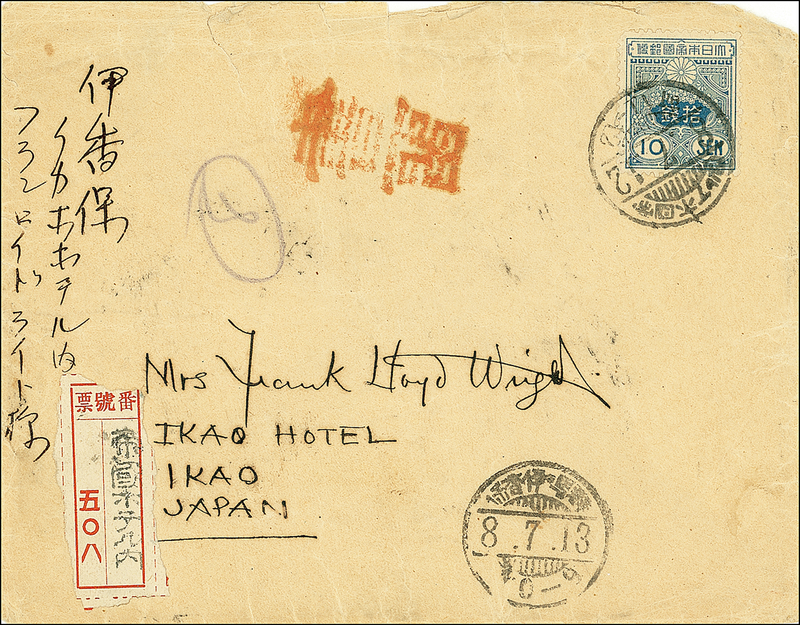 伊香保
イカホホテル内
フランロイドライト様
大日本帝國郵便
拾銭
10 SEN
Mrs Frank Lloyd Wright
IKAO HOTEL
IKAO
JAPAN
番號票
帝国ホテル内
五〇八
伊香保
8.7.13